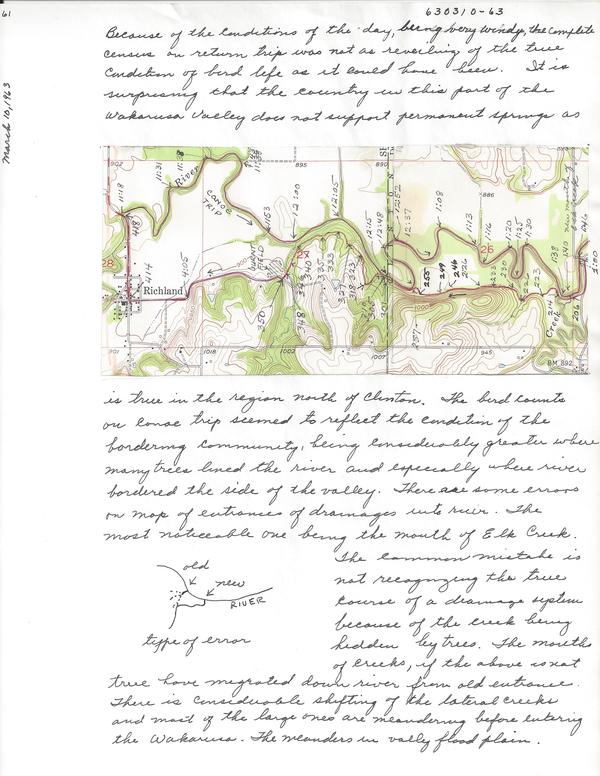 61
630310-63
March 10, 1963
Because of the conditions of the day, being very windy, the complete
census on return trip was not as reveiling of the true
condition of bird life as it could have been. It is
surprising that the country in this part of the
Wakarusa Valley does not support permanent springs as
902
11:18
11:31
11:38
River
CANOE
TRIP
895
890
886
11:53
12:00
12:05
12:15
12:48
12:52
12:37
1:08
1:13
1:16
1:20
1:25
1:30
1:38
1:40
2:00
28
26
418
414
4:05
Richland
350
348
333
255
249
246
901
1018
1002
1007
1000
945
BM 892
Creek
is true in the region north of Clinton. The bird counts
on canoe trip seemed to reflect the condition of the
bordering community, being considerably greater where
many trees lined the river and especially where river
bordered the side of the valley. There are some errors
on map of entrances of drainages into river. The
most noticeable one being the mouth of Elk Creek.
old
new
RIVER
type of error
The common mistake is
not recognizing the true
course of a drainage system
because of the creek being
hidden by trees. The mouths
of creeks, if the above is not
true have migrated down river from old entrance.
There is considerable shifting of the lateral creeks
and most of the large ones are meandering before entering
the Wakarusa. The meanders in vally flood plain.